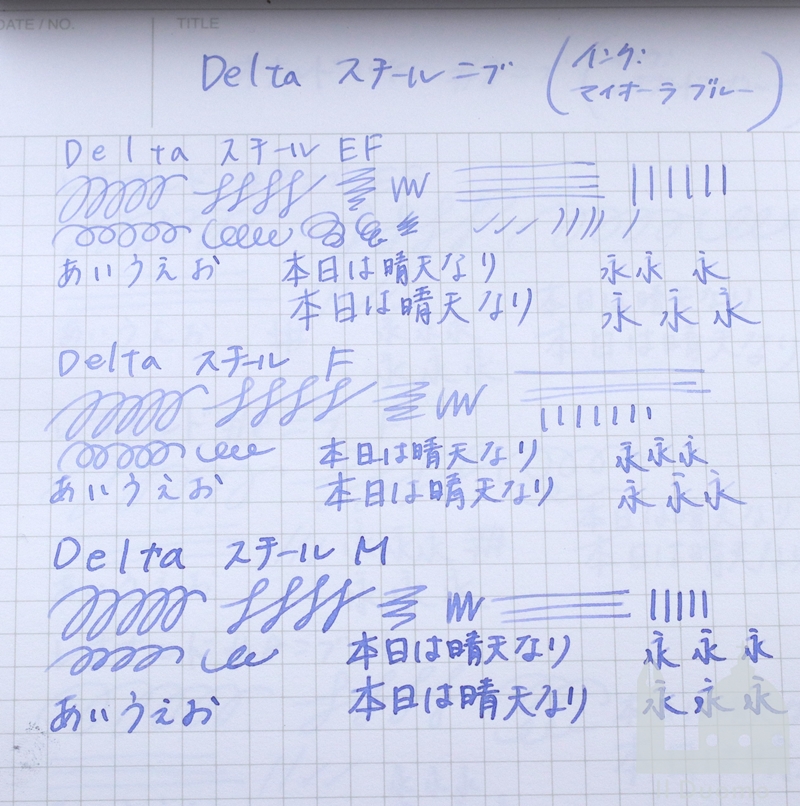 DATE / NO. TITLE
Delta スチールニブ (インク:
マイオーラ ブルー)
Delta スチール EF
あいうえお 本日は晴天なり 永永 永
本日は晴天なり 永 永 永
Delta スチール F
本日は晴天なり 永永永
あいうえお 本日は晴天なり 永 永永
Delta スチール M
本日は晴天なり 永 永 永
あいうえお 本日は晴天なり 永 永 永